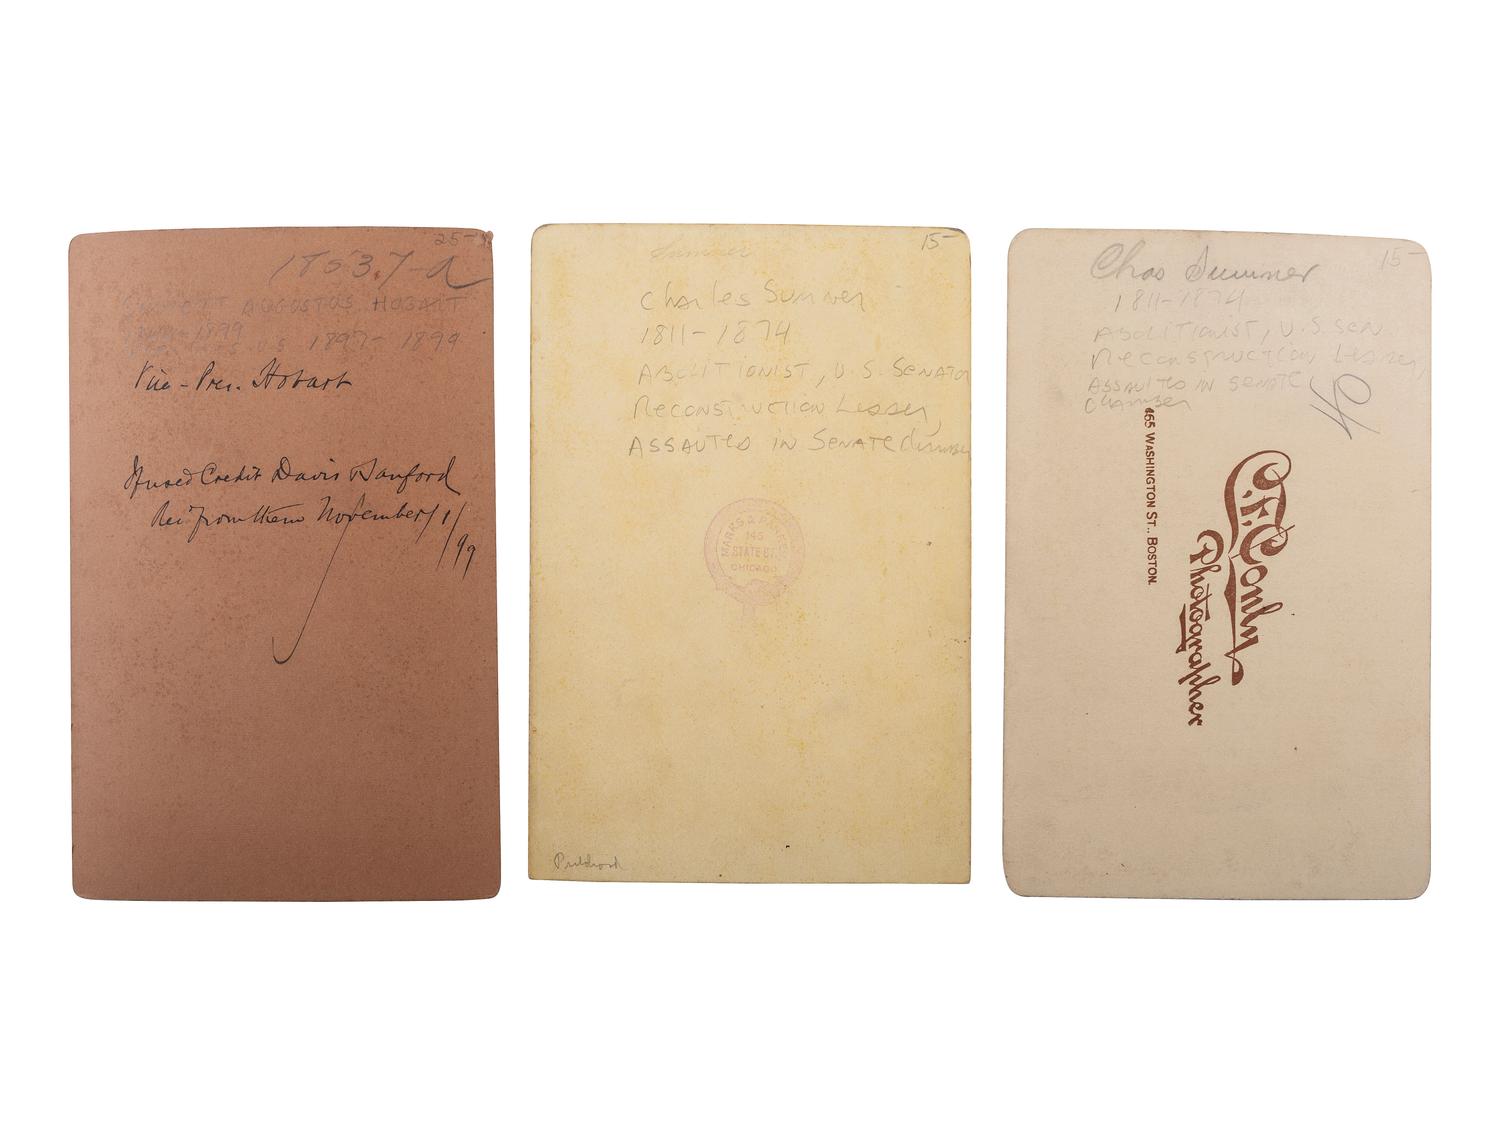 25-
1853.7-a
GARRETT AUGUSTUS HOBART
1844-1899
U.S. 1897-1899
Vice-Pres. Hobart
Used Credit Davis & Sanford
Rec'd from them November 1/99
Sumner
15-
Charles Sumner
1811-1874
ABOLITIONIST, U.S. SENATOR
RECONSTRUCTION Leader,
ASSAULTED IN SENATE Chamber
MARKS & PA
145
STATE ST.
CHICAGO
Chas Sumner
15-
1811-1874
ABOLITIONIST, U.S. SEN
RECONSTRUCTION Leader,
ASSAULTED IN SENATE
CHAMBER
465 WASHINGTON ST., BOSTON.
C.F. Conly
Photographer